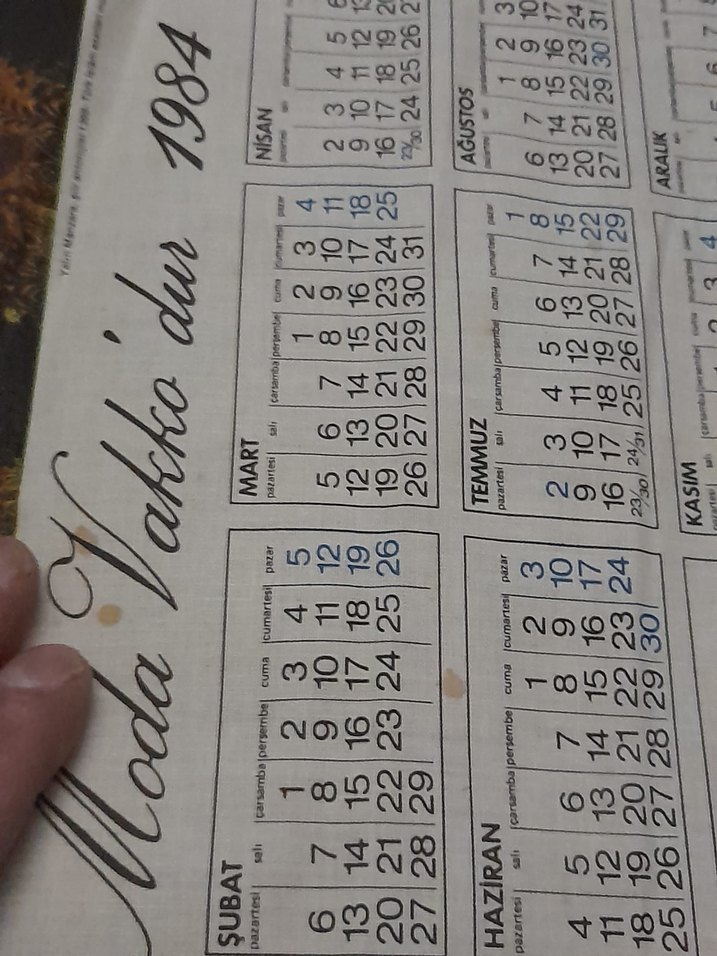 Moda Vakko'dur 1984
ŞUBAT
pazartesi salı çarşamba perşembe cuma cumartesi pazar
1 2 3 4 5
6 7 8 9 10 11 12
13 14 15 16 17 18 19
20 21 22 23 24 25 26
27 28 29
MART
pazartesi salı çarşamba perşembe cuma cumartesi pazar
1 2 3 4
5 6 7 8 9 10 11
12 13 14 15 16 17 18
19 20 21 22 23 24 25
26 27 28 29 30 31
NİSAN
2 3 4 5
9 10 11 12
16 17 18 19
23/30 24 25 26
HAZİRAN
pazartesi salı çarşamba perşembe cuma cumartesi pazar
1 2 3
4 5 6 7 8 9 10
11 12 13 14 15 16 17
18 19 20 21 22 23 24
25 26 27 28 29 30
TEMMUZ
pazartesi salı çarşamba perşembe cuma cumartesi pazar
1
2 3 4 5 6 7 8
9 10 11 12 13 14 15
16 17 18 19 20 21 22
23/30 24/31 25 26 27 28 29
AĞUSTOS
1 2 3
6 7 8 9 10
13 14 15 16 17
20 21 22 23 24
27 28 29 30 31
KASIM
pazartesi salı çarşamba perşembe cuma cumartesi
3 4
ARALIK